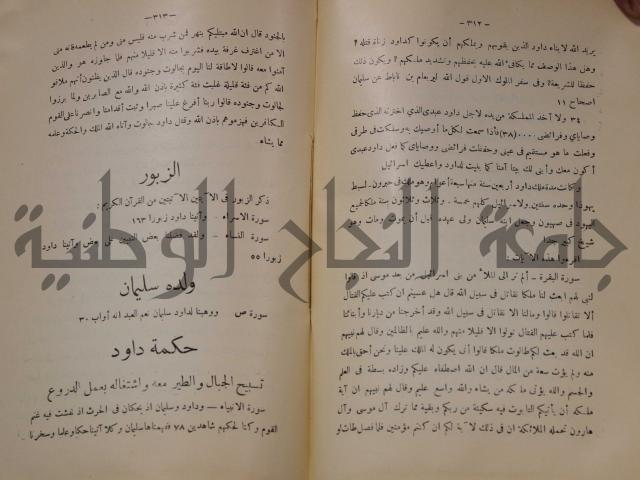 — ٣١٢ —
يريد الله لابناء داود الذين يقومهم ويملكهم أن يكونوا كداود زناة قتلة ؟
وهل هذا الوصف مما يكافىء الله عليه بحفظهم وتشديد ملكهم ؟ ويكون ذلك
حفظا للشريعة؟ وفى سفر الملوك الاول قول الله ليربعام بن ناباط عن سليمان
اصحاح ١١
٣٤ ولا آخذ المملكة من يده لاجل داود عبدى الذى اخترته الذى حفظ
وصاياي وفرائضى ...(٣٨) فأذا سمعت لكل ما أوصيك به وسلكت فى طرقى
وفعلت ما هو مستقيم فى عينى وحفظت فرائضى ووصاياى كما فعل داود عبدى
أكون معك وأبنى لك بيتا آمنا كما بنيت لداود واعطيك اسرائيل
وكانت مدة ملك داود أربعين سنة منها سبعة أعوام وهو ملك فى حبرون - لسبط
يهوذا وحده سنتين ولاسرائيل كلهم خمسة . وثلاث وثلاثون سنة ملكا لجميع
اليهود فى صهيون وجعل ابنه سليمان ولى عهده قبل أن يموت ومات وهو
شيخ كبير
اقرءوا هذه الآيات :
سورة البقرة - ألم تر الى الملأ من بنى اسرائيل من بعد موسى اذ قالوا
لنبى لهم ابعث لنا ملكا نقاتل فى سبيل الله قال هل عسيتم ان كتب عليكم القتال
ألا تقاتلوا قالوا ومالنا الا نقاتل فى سبيل الله وقد أخرجنا من ديارنا وأبنائنا
فلما كتب عليهم القتال تولوا الا قليلا منهم والله عليم بالظالمين وقال لهم نبيهم
ان الله قد بعث لكم طالوت ملكا قالوا أنى يكون له الملك علينا ونحن أحق بالملك
منه ولم يؤت سعة من المال قال ان الله اصطفاه عليكم وزاده بسطة فى العلم
والجسم والله يؤتى ملكه من يشاء والله واسع عليم وقال لهم نبيهم ان آية
ملكه أن يأتيكم التابوت فيه سكينة من ربكم وبقية مما ترك آل موسى وآل
هارون تحمله الملائكة ان فى ذلك لآية لكم ان كنتم مؤمنين فلما فصل طالوت
— ٣١٣ —
بالجنود قال ان الله مبتليكم بنهر فمن شرب منه فليس منى ومن لم يطعمه فانه منى
الا من اغترف غرفة بيده فشربوا منه الا قليلا منهم فلما جاوزه هو والذين
آمنوا معه قالوا لا طاقة لنا اليوم بجالوت وجنوده قال الذين يظنون أنهم ملاقو
الله كم من فئة قليلة غلبت فئة كثيرة باذن الله والله مع الصابرين ولما برزوا
لجالوت وجنوده قالوا ربنا أفرغ علينا صبرا وثبت أقدامنا وانصرنا على القوم
الكافرين فهزموهم باذن الله وقتل داود جالوت وآتاه الله الملك والحكمة وعلمه
مما يشاء.
الزبور
ذكر الزبور فى الآيتين الآتيتين من القرآن الكريم :
سورة الاسراء . وآتينا داود زبورا ١٦٣
سورة النساء - ولقد فضلنا بعض النبيين على بعض وآتينا داود
زبورا ٥٥
ولده سليمان
سورة ص ووهبنا لداود سليمان نعم العبد انه أواب ٣٠
حكمة داود
تسبيح الجبال والطير معه واشتغاله بعمل الدروع
سورة الانبياء - وداود وسليمان اذ يحكمان فى الحرث اذ نفشت فيه غنم
القوم وكنا لحكمهم شاهدين ٧٨ ففهمناها سليمان وكلا آتينا حكما وعلما وسخرنا
جامعة النجاح الوطنية